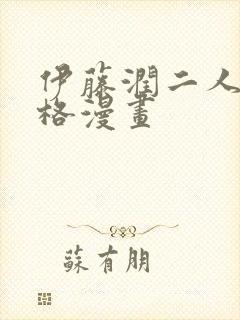 伊藤潤二人
格漫畫
蘇有朋